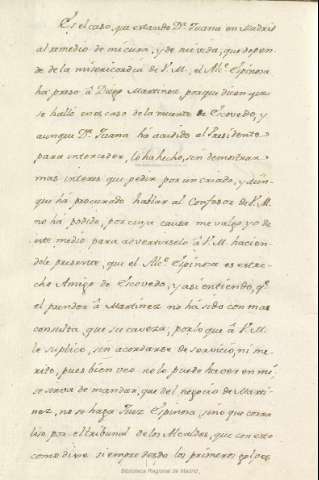 Es el caso, que estando D.ª Juana en Madrid
al remedio de mi cura, y de mi vida, que depen-
de de la misericordia de V. M., el Alc.e Espinosa
ha preso â Diego Martinez, porque dicen que
se halló en el caso de la muerte de Escovedo, y
aunque D.ª Juana há acudido al Presidente
para interceder, lo ha hecho, sin demostrar
mas interes que pedir por un criado, y aun-
que ha procurado hablar al Confesor de V. M.
no ha podido, por cuya causa me valgo yo de
este medio para advertirselo â V. M. hacien-
dole presente, que el Alc.e Espinosa es estre-
cho Amigo de Escovedo, y asi entiendo, q.e
el prender â Martinez no há sido con mas
consulta, que su caveza; por lo que â V. M.
le suplico, sin acordarse de servicio, ni me-
rito, pues bien veo no le puedo haver en mi,
se sirva de mandar, que del negocio de Marti-
nez, no se haga Juez Espinosa, sino que corra
por el tribunal de los Alcaldes, que con esto
como dixe siempre desde los primeros golpes,
Biblioteca Regional de Madrid